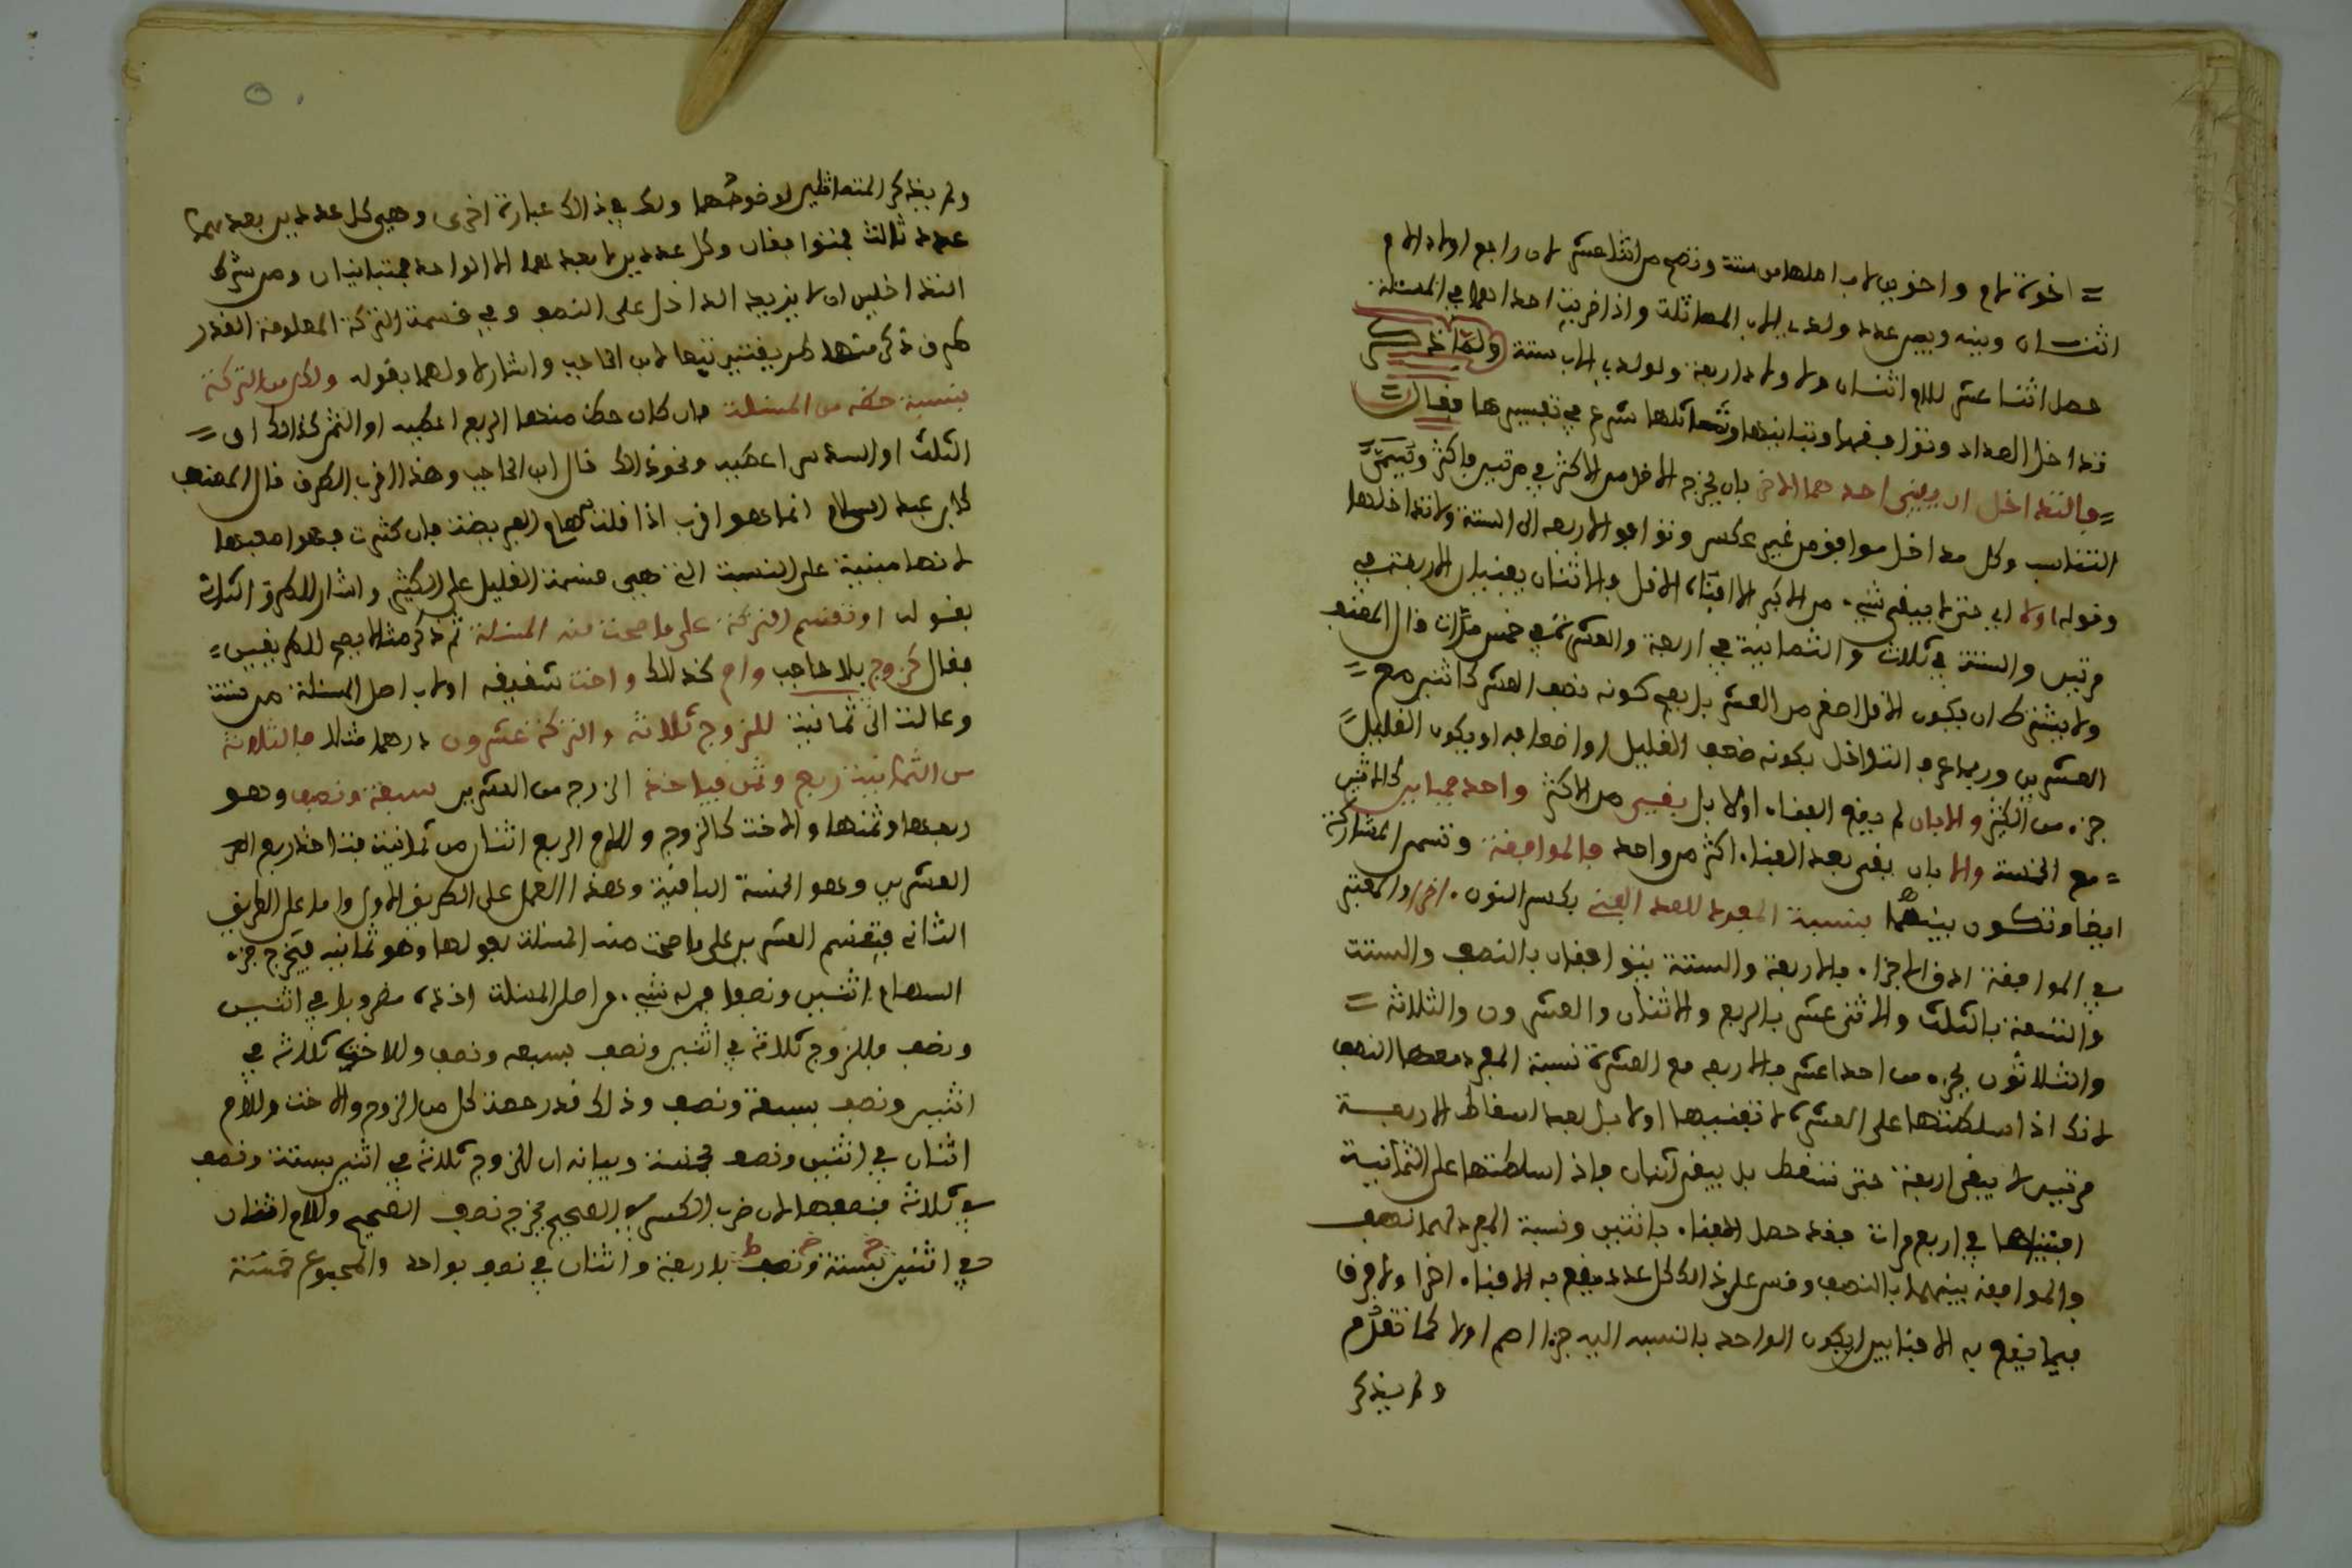 = اخوة لام واخوين لاب اصلها من ستة وتصح من اثنا عشر لان راجع اولاد الام
اثنان وبينه وبين عدد ولدي الاب المماثلة واذا ضربت احداهما في المسئلة
حصل اثنا عشر للام اثنان ولاولادها اربعة ولولدي الاب ستة ولما ذكر
تداخل العداد وتوافقها وتباينها وتماثلها شرع في تفسيرها فقال =
= فالتداخل ان يفني احدهما الاخر بان يخرج الاقل من الاكثر في مرتين فاكثر ويسمى =
التناسب وكل متداخل موافق من غير عكس وتوافق الاربعة الى الستة ولا تداخلها
وقوله اولا اي حتى لا يبقى شيء من الاكبر الا افناه الاقل فالاثنان يفنيان الاربعة في
مرتين والستة في ثلاث والثمانية في اربعة والعشرة في خمس مرات قال المصنف
ولا يشترط ان يكون الاقل اصغر من العشر بل يصح كونه نصف العشر كاثنين مع =
العشرين وربما عرف التداخل بكونه ضعف القليل او اضعافه او يكون القليل =
جزء من الكثير والا بان لم يقع الفناء اولا بل بقي من الاكثر واحد فمباين كالاثنين
= مع الخمسة والا بان بقي بعد الفناء اكثر من واحد فالموافقة وتسمى المشاركة
ايضا وتكون بينهما بنسبة المفرد للعدد المفني بكسر النون اخرا والمعتبر
في الموافقة ادق الاجزاء فالاربعة والستة يتوافقان بالنصف والستة
والتسعة بالثلث والاثنى عشر بالربع والاثنان والعشرون والثلاثة =
والثلاثون بجزء من احد عشر فالاربعة مع العشرة نسبة المفرد معها النصف
لانك اذا سلطتها على العشرة لا تفنيها اولا بل بعد اسقاط الاربعة
مرتين لا يبقى اربعة حتى تسقط بل يبقى اثنان فاذا سلطتها على الثمانية
افنتها في اربع مرات فقد حصل الافناء باثنين ونسبة المفرد لهما نصف
والموافقة بينهما بالنصف وقس على ذلك كل عدد يقع به الافناء اخرا ولا فرق
فيما يقع به الافنا بين ان يكون الواحد بالنسبة اليه جزءا اصم اولا كما تقدم
ولم يذكر
ولم يذكر المتماثلين لوضوحهما ولك في ذلك عبارة اخرى وهي كل عددين يعدهما
عدد ثالث فمتوافقان وكل عددين لا يعدهما الا الواحد فمتباينان ومن شرط
التداخلين ان لا يزيد الداخل على النصف وفي قسمة التركة المعلومة القدر
طرق ذكر منها طريقتين تبعا لابن الحاجب واشار لاولهما بقوله ولكل من التركة
بنسبة حظه من المسئلة فان كان حظه منها الربع اعطيه او الثمن كذلك او =
الثلث او السدس اعطيه ونحو ذلك قال ابن الحاجب وهذا اقرب الطرق قال المصنف
كابن عبد السلام انما هو اقرب اذا قلت سهام الفريضة فان كثرت فهو اصعبها
لانها مبنية على النسبة التي هي قسمة القليل على الكثير واشار للطرق الثانية
بقوله او تقسم التركة على ما صحت منه المسئلة ثم ذكر مثالا يصح للطريقين =
فقال كزوج بلا حاجب وام كذلك واخت شقيقة او لاب اصل المسئلة من ستة
وعالت الى ثمانية للزوج ثلاثة والتركة عشرون درهما مثلا فالثلاثة
من الثمانية ربع وثمن فياخذ الزوج من العشرين سبعة ونصف وهو
ربعها وثمنها والاخت كالزوج وللام الربع اثنان من ثمانية فتاخذ ربع
العشرين وهو الخمسة الباقية وهذا العمل على الطريق الاول واما على الطريق
الثاني فتقسم العشرين على ما صحت منه المسئلة بعولها وهو ثمانية فيخرج جزء
السهام اثنين ونصف فمن له شيء من اصل المسئلة اخذه مضروبا في اثنين
ونصف فللزوج ثلاثة في اثنين ونصف بسبعة ونصف وللاخت ثلاثة في
اثنين ونصف بسبعة ونصف وذلك قدر حصة كل من الزوج والاخت وللام
اثنان في اثنين ونصف بخمسة وبيانه ان للزوج ثلاثة في اثنين بستة ونصف
في ثلاثة فنصفها لان ضرب الكسر في الصحيح يخرج نصف الصحيح وللام اثنان
في اثنين بستة ونصف باربعة واثنان في نصف بواحد والمجموع خمسة